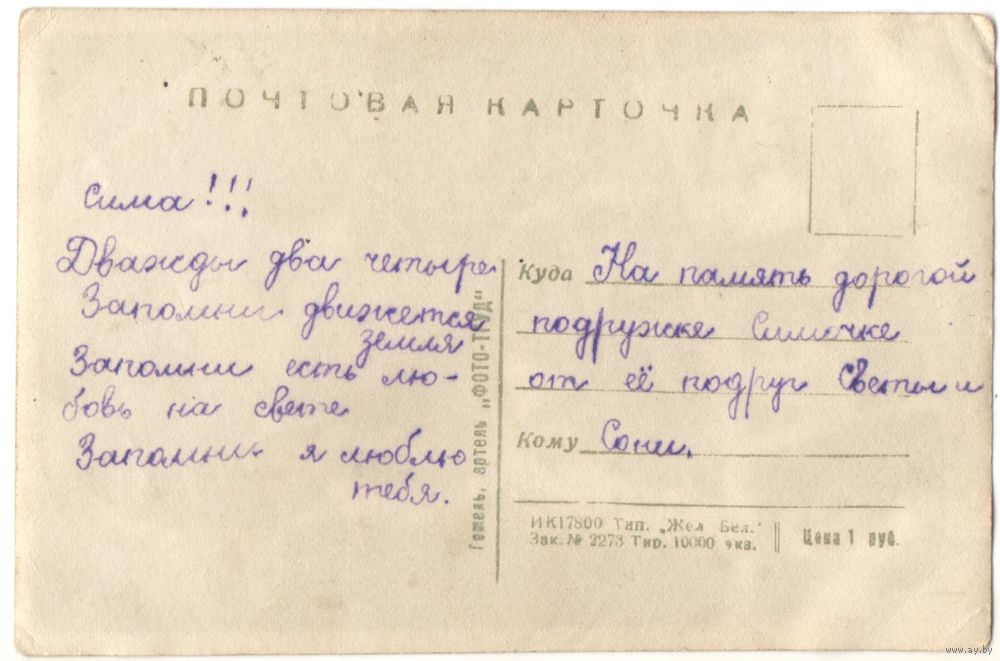 ПОЧТОВАЯ КАРТОЧКА
Сима!!!
Дважды два четыре
Запомни движется
земля
Запомни есть лю-
бовь на свете
Запомни я люблю
тебя.
Гомель, артель „ФОТО-ТРУД“
Куда На память дорогой
подружке Симочке
от её подруг Светы и
Кому Сони.
ИК17800 Тип. „Жел. Бел.“
Зак. № 2273 Тир. 10000 экз.
Цена 1 руб.
www.ay.by